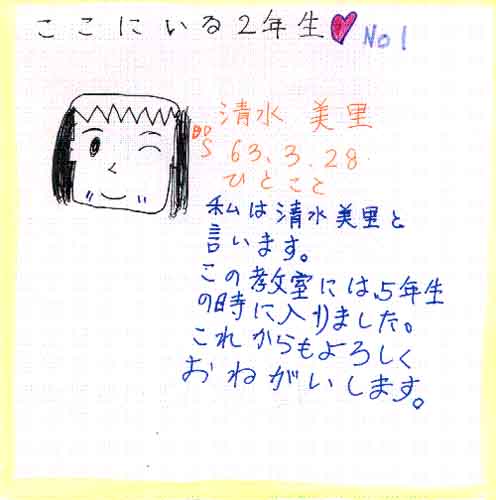 ここにいる2年生♥ No 1
清水 美里
S 63.3.28.
ひとこと
私は清水美里と
言います。
この教室には、5年生
の時に入りました。
これからもよろしく
おねがいします。